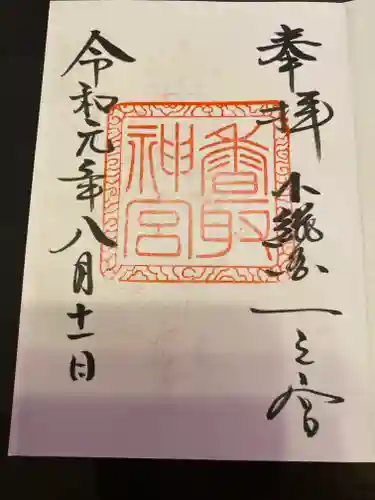 奉拝
下総国一之宮
香取
神宮
令和元年八月十一日